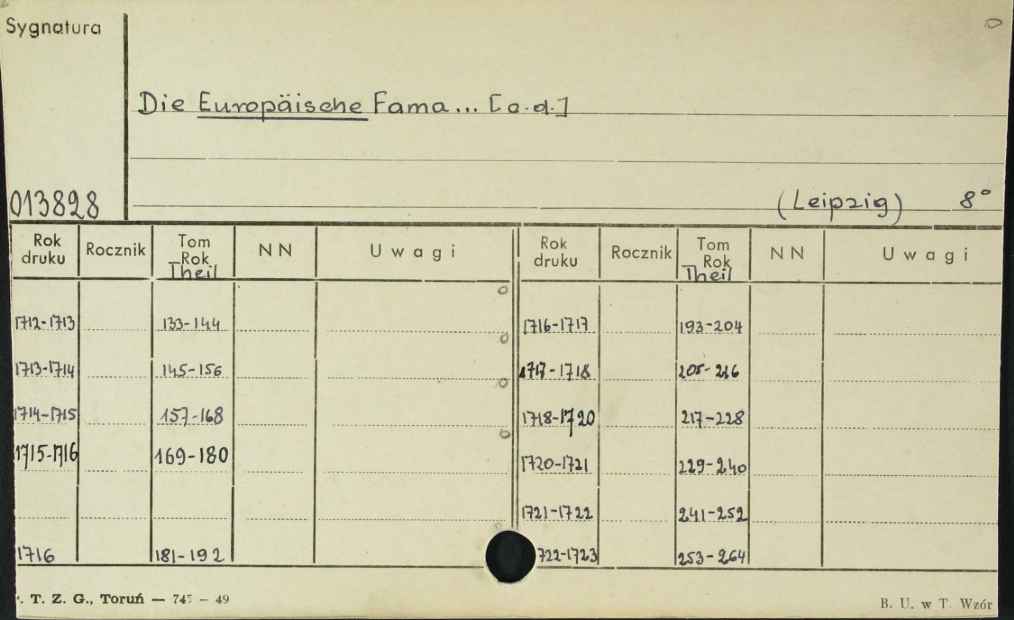 Sygnatura
Die Europäische Fama... [c.d.]
013828
(Leipzig) 8°
Rok druku Rocznik Tom Rok Theil NN Uwagi Rok druku Rocznik Tom Rok Theil NN Uwagi
1712-1713 133-144 1716-1717 193-204
1713-1714 145-156 1717-1718 205-216
1714-1715 157-168 1718-1720 217-228
1715-1716 169-180 1720-1721 229-240
1721-1722 241-252
1716 181-192 722-1723 253-264
T. Z. G., Toruń — 745 — 49
B. U. w T. Wzór